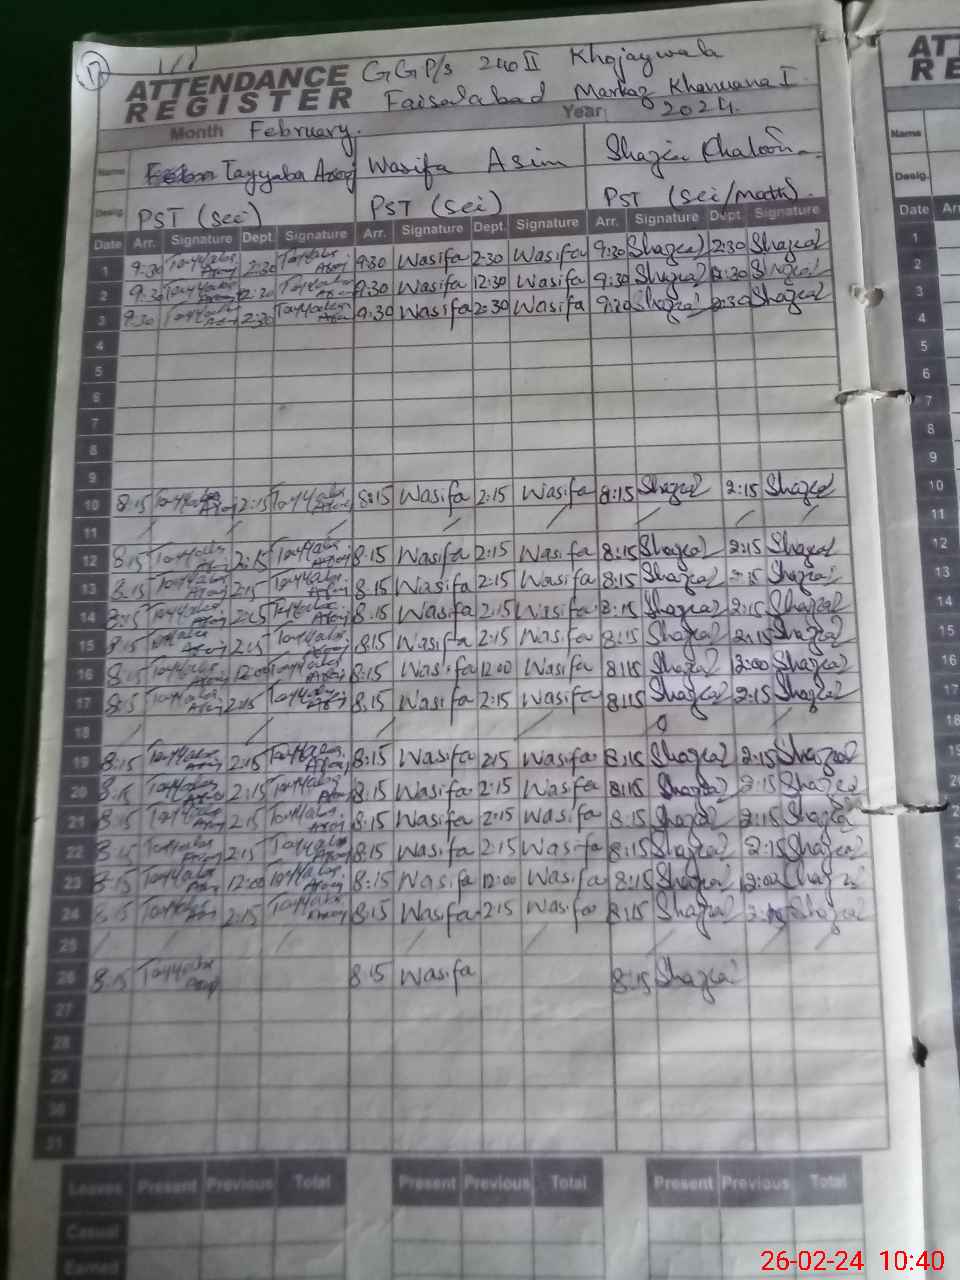 17
ATTENDANCE REGISTER
GGP/s 240 II Khojaywala
Faisalabad Markaz Khanuana I
Month February. Year: 2024.
Name Tayyaba Arooj Wasifa Asim Shazia Khatoon
Desig. PST (sci) PST (sci) PST (sci/math).
Date Arr. Signature Dept. Signature Arr. Signature Dept. Signature Arr. Signature Dept. Signature
1 9:30 Tayyaba Arooj 2:30 Tayyaba Arooj 9:30 Wasifa 2:30 Wasifa 9:30 Shazia 2:30 Shazia
2 9:30 Tayyaba Arooj 12:30 Tayyaba 9:30 Wasifa 12:30 Wasifa 9:30 Shazia 12:30 Shazia
3 9:30 Tayyaba Arooj 2:30 Tayyaba 9:30 Wasifa 2:30 Wasifa 9:30 Shazia 2:30 Shazia
4
5
6
7
8
9
10 8:15 Tayyaba Arooj 2:15 Tayyaba Arooj 8:15 Wasifa 2:15 Wasifa 8:15 Shazia 2:15 Shazia
11
12 8:15 Tayyaba 2:15 Tayyaba Arooj 8:15 Wasifa 2:15 Wasifa 8:15 Shazia 2:15 Shazia
13 8:15 Tayyaba Arooj 2:15 Tayyaba Arooj 8:15 Wasifa 2:15 Wasifa 8:15 Shazia 2:15 Shazia
14 8:15 Tayyaba Arooj 2:15 Tayyaba Arooj 8:15 Wasifa 2:15 Wasifa 8:15 Shazia 2:15 Shazia
15 8:15 Tayyaba Arooj 2:15 Tayyaba Arooj 8:15 Wasifa 2:15 Wasifa 8:15 Shazia 2:15 Shazia
16 8:15 Tayyaba Arooj 12:00 Tayyaba Arooj 8:15 Wasifa 12:00 Wasifa 8:15 Shazia 12:00 Shazia
17 8:15 Tayyaba Arooj 2:15 Tayyaba Arooj 8:15 Wasifa 2:15 Wasifa 8:15 Shazia 2:15 Shazia
18
19 8:15 Tayyaba Arooj 2:15 Tayyaba Arooj 8:15 Wasifa 2:15 Wasifa 8:15 Shazia 2:15 Shazia
20 8:15 Tayyaba Arooj 2:15 Tayyaba Arooj 8:15 Wasifa 2:15 Wasifa 8:15 Shazia 2:15 Shazia
21 8:15 Tayyaba Arooj 2:15 Tayyaba Arooj 8:15 Wasifa 2:15 Wasifa 8:15 Shazia 2:15 Shazia
22 8:15 Tayyaba Arooj 2:15 Tayyaba Arooj 8:15 Wasifa 2:15 Wasifa 8:15 Shazia 2:15 Shazia
23 8:15 Tayyaba 12:00 Tayyaba Arooj 8:15 Wasifa 12:00 Wasifa 8:15 Shazia 12:00 Shazia
24 8:15 Tayyaba 2:15 Tayyaba Arooj 8:15 Wasifa 2:15 Wasifa 8:15 Shazia 2:15 Shazia
25
26 8:15 Tayyaba Arooj 8:15 Wasifa 8:15 Shazia
27
28
29
30
31
Leaves Present Previous Total Present Previous Total Present Previous Total
Casual
Earned
Name
Desig.
Date
1
2
3
4
5
6
7
8
9
10
11
12
13
14
15
16
17
18
26-02-24 10:40